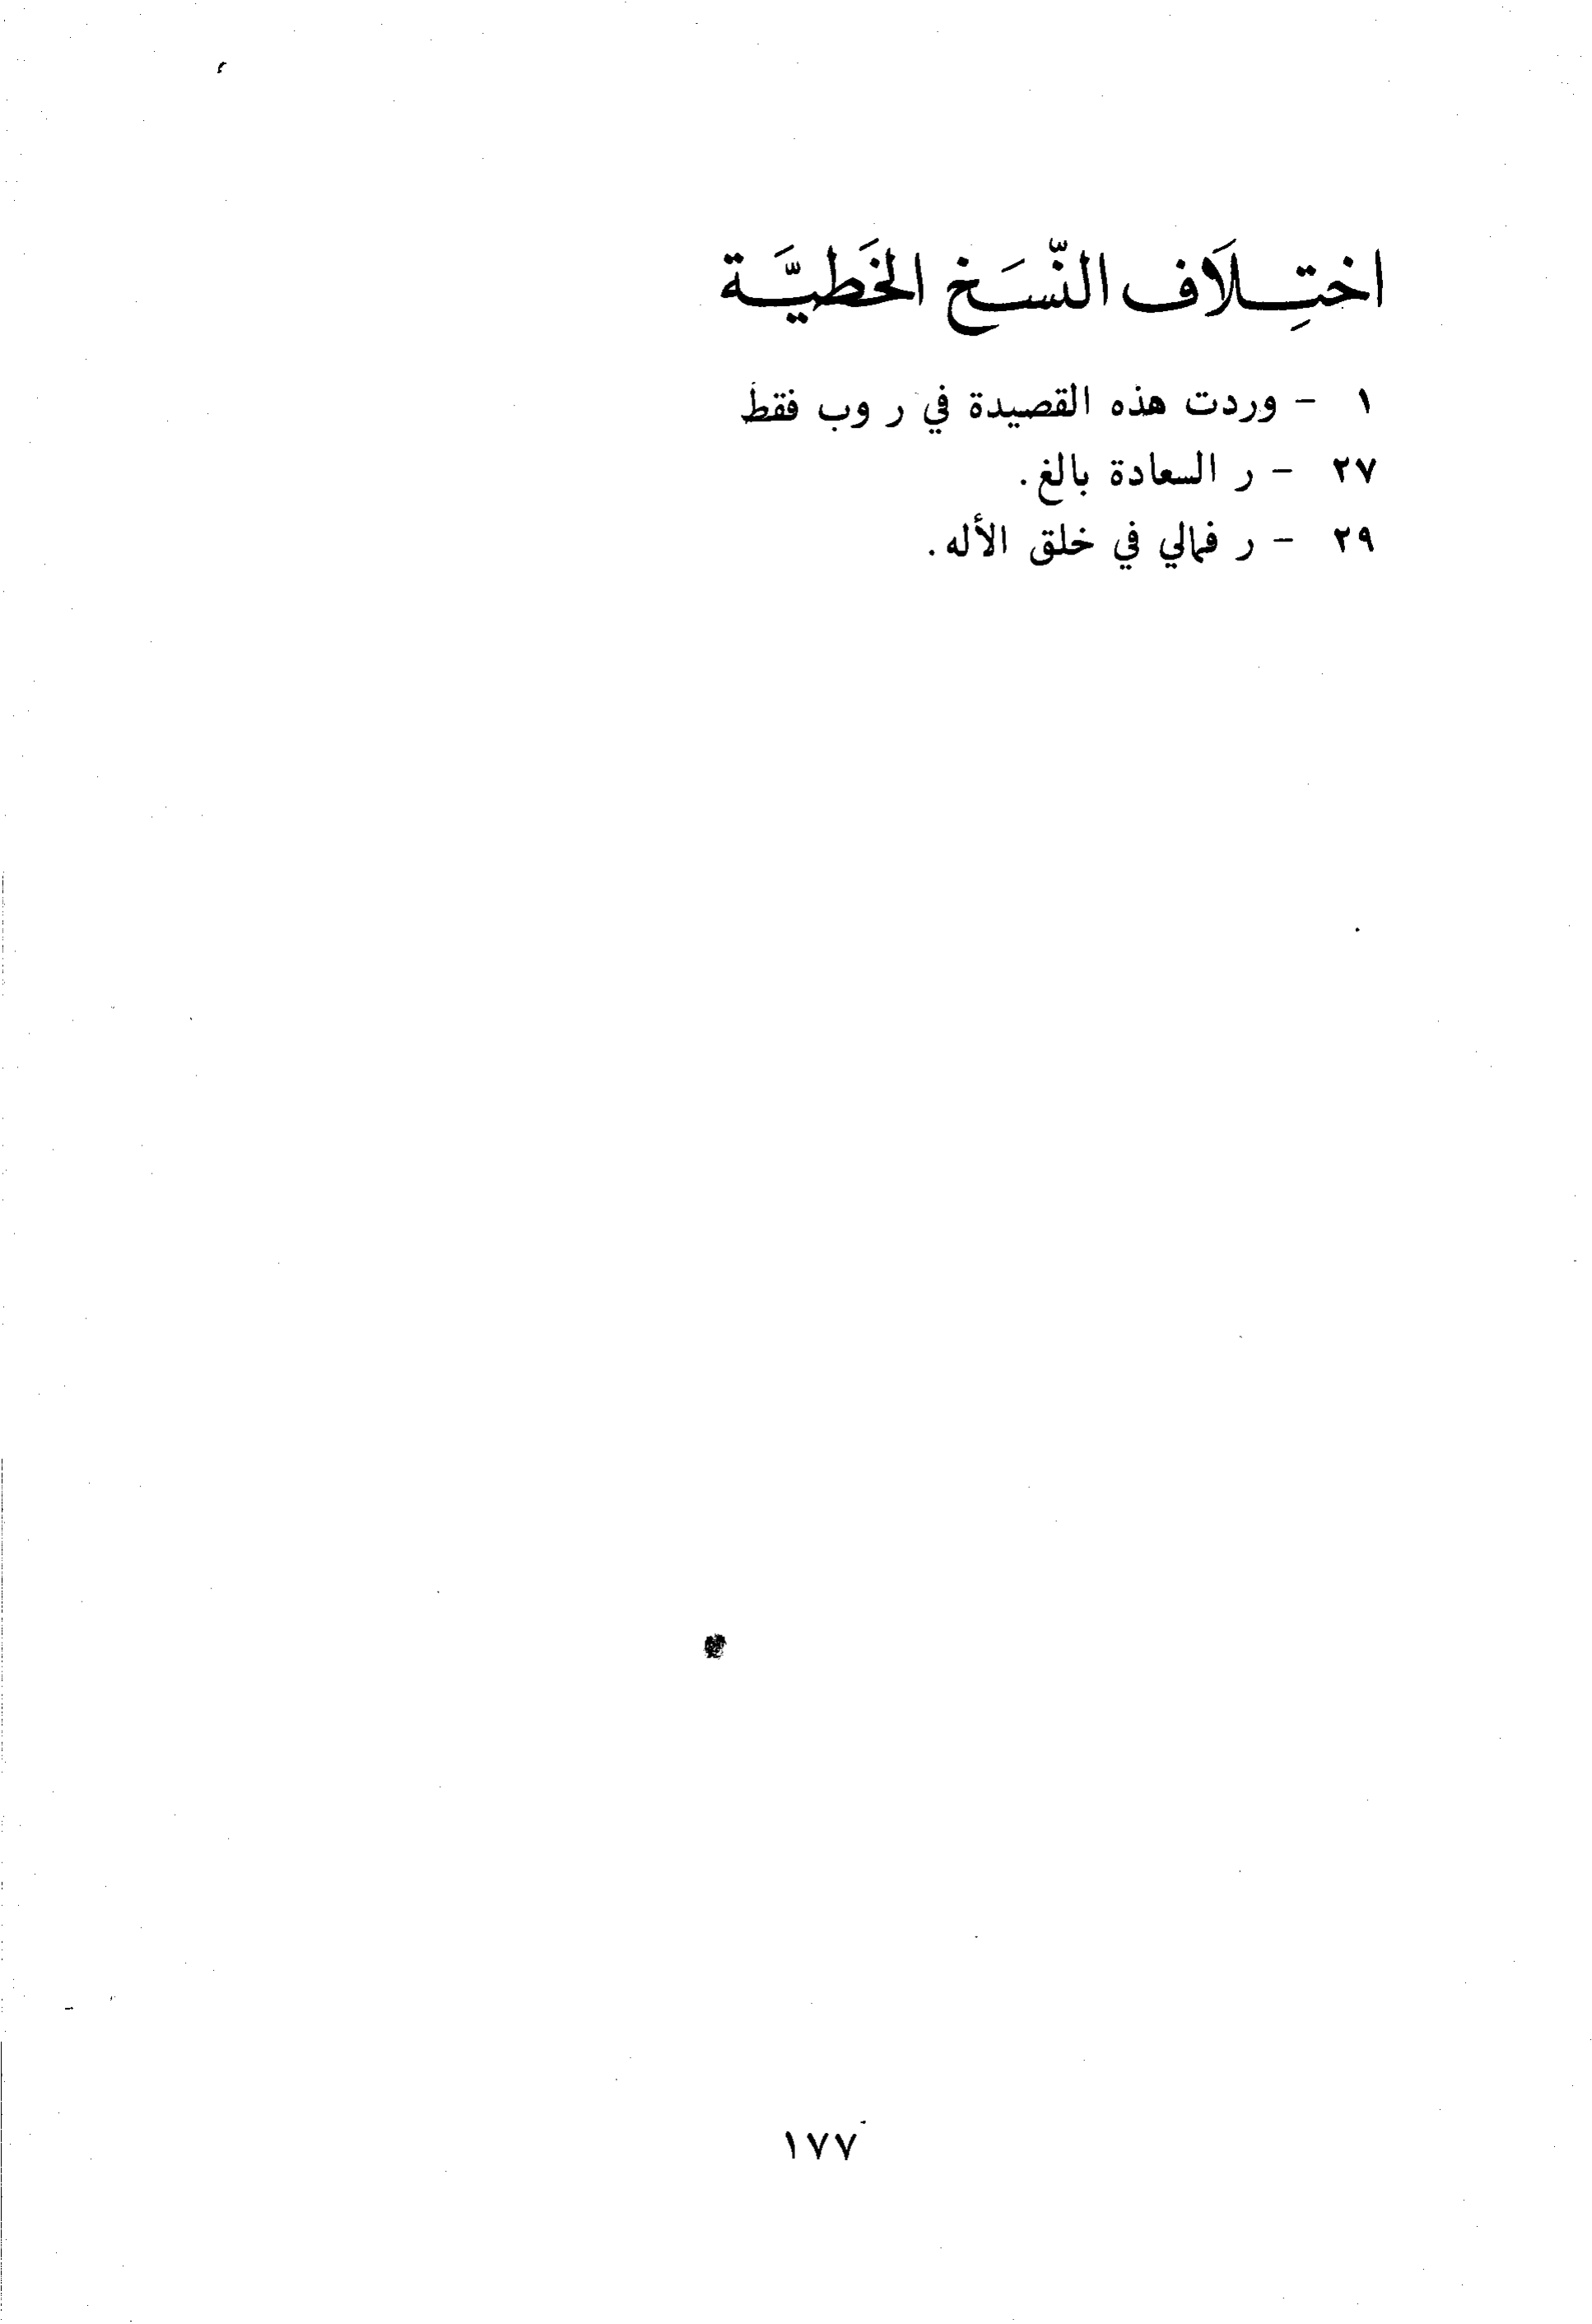 اختِلَاف النّسَخ الخَطيَّة
١ - وردت هذه القصيدة في ر وب فقط
٢٧ - ر السعادة بالغ.
٢٩ - ر فمالي في خلق الأله.
١٧٧